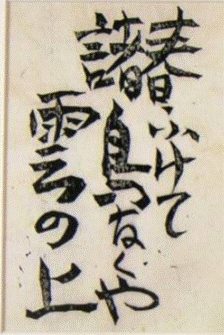 春ふけて
諸鳥なくや
雲の上